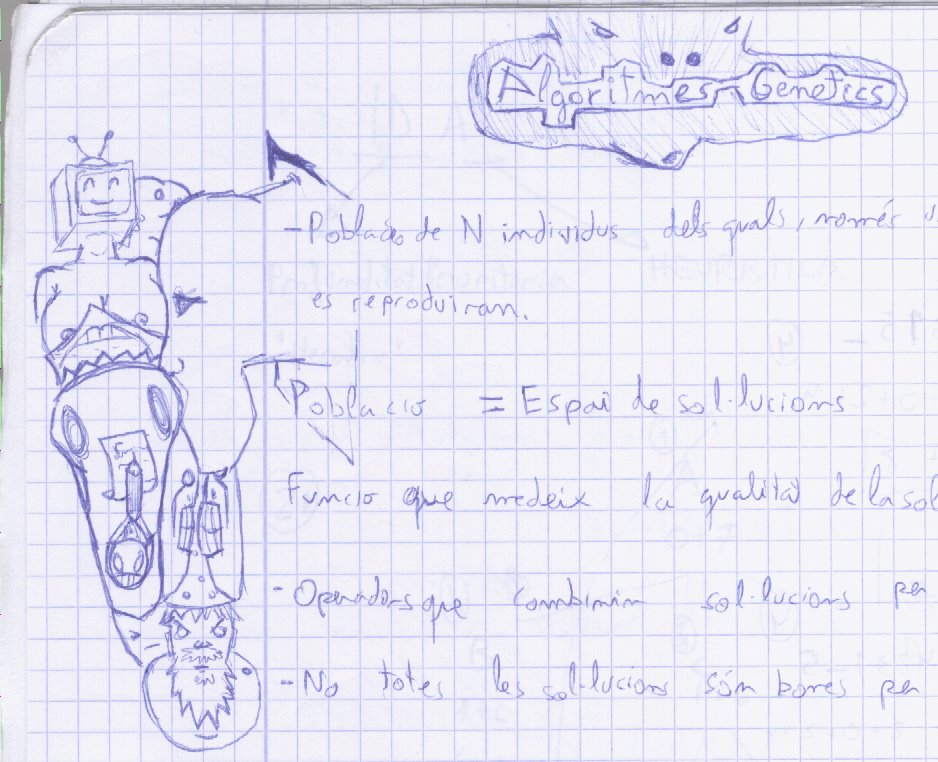 Algoritmes Genetics
- Població de N individus dels quals, només
es reproduiran.
Poblacio = Espai de sol·lucions
Funcio que medeix la qualitat de la sol
- Operadors que combinin sol·lucions per
- No totes les sol·lucions són bones per